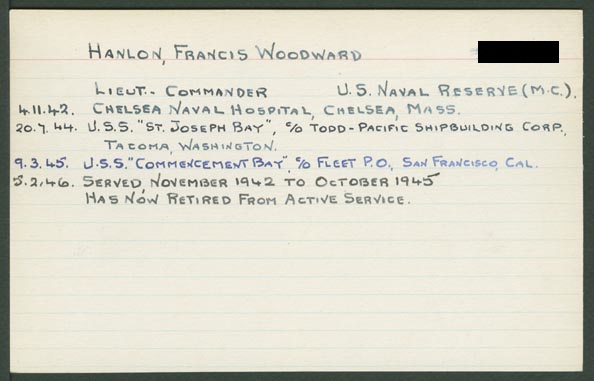 HANLON, FRANCIS WOODWARD
LIEUT.- COMMANDER U.S. NAVAL RESERVE (M.C.).
4.11.42. CHELSEA NAVAL HOSPITAL, CHELSEA, MASS.
20.7.44. U.S.S. "ST. JOSEPH BAY", c/o TODD-PACIFIC SHIPBUILDING CORP.,
TACOMA, WASHINGTON.
9.3.45. U.S.S. "COMMENCEMENT BAY", c/o FLEET P.O., SAN FRANCISCO, CAL.
5.2.46. SERVED NOVEMBER 1942 TO OCTOBER 1945
HAS NOW RETIRED FROM ACTIVE SERVICE.